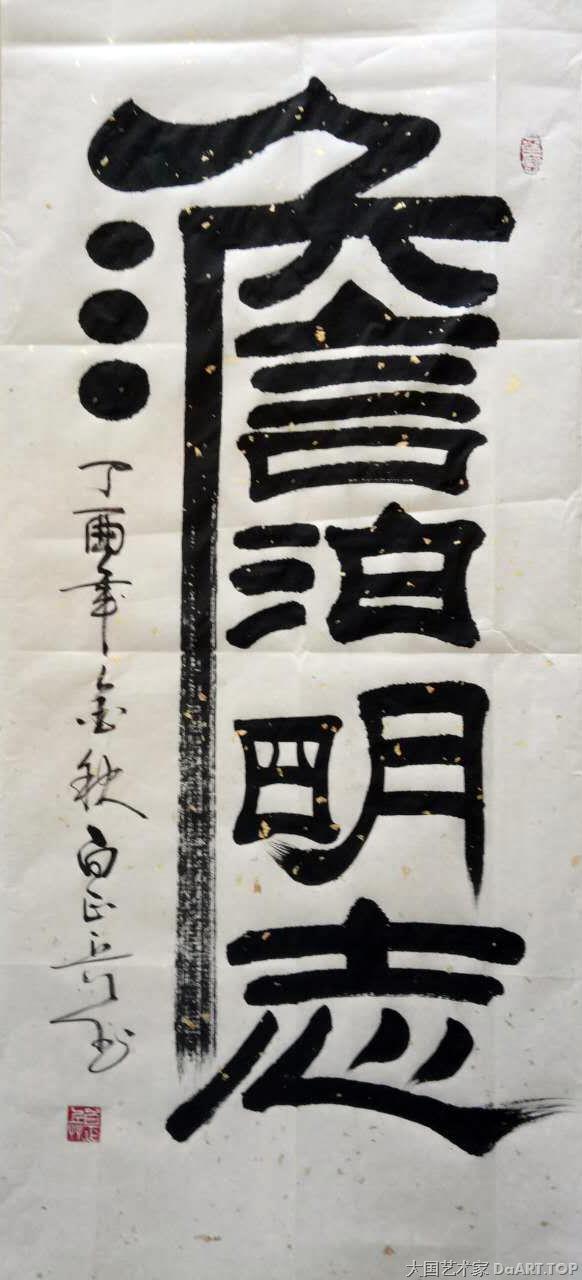 澹泊明志
丁酉年金秋白正书
大国艺术家 DaART.TOP